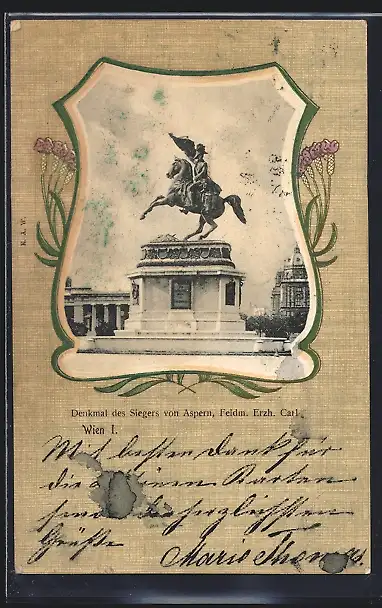 K. A. W.
Denkmal des Siegers von Aspern, Feldm. Erzh. Carl
Wien I.
Mit besten Dank für
die Karten
herzlichsten
Grüße
Marie Thomas.